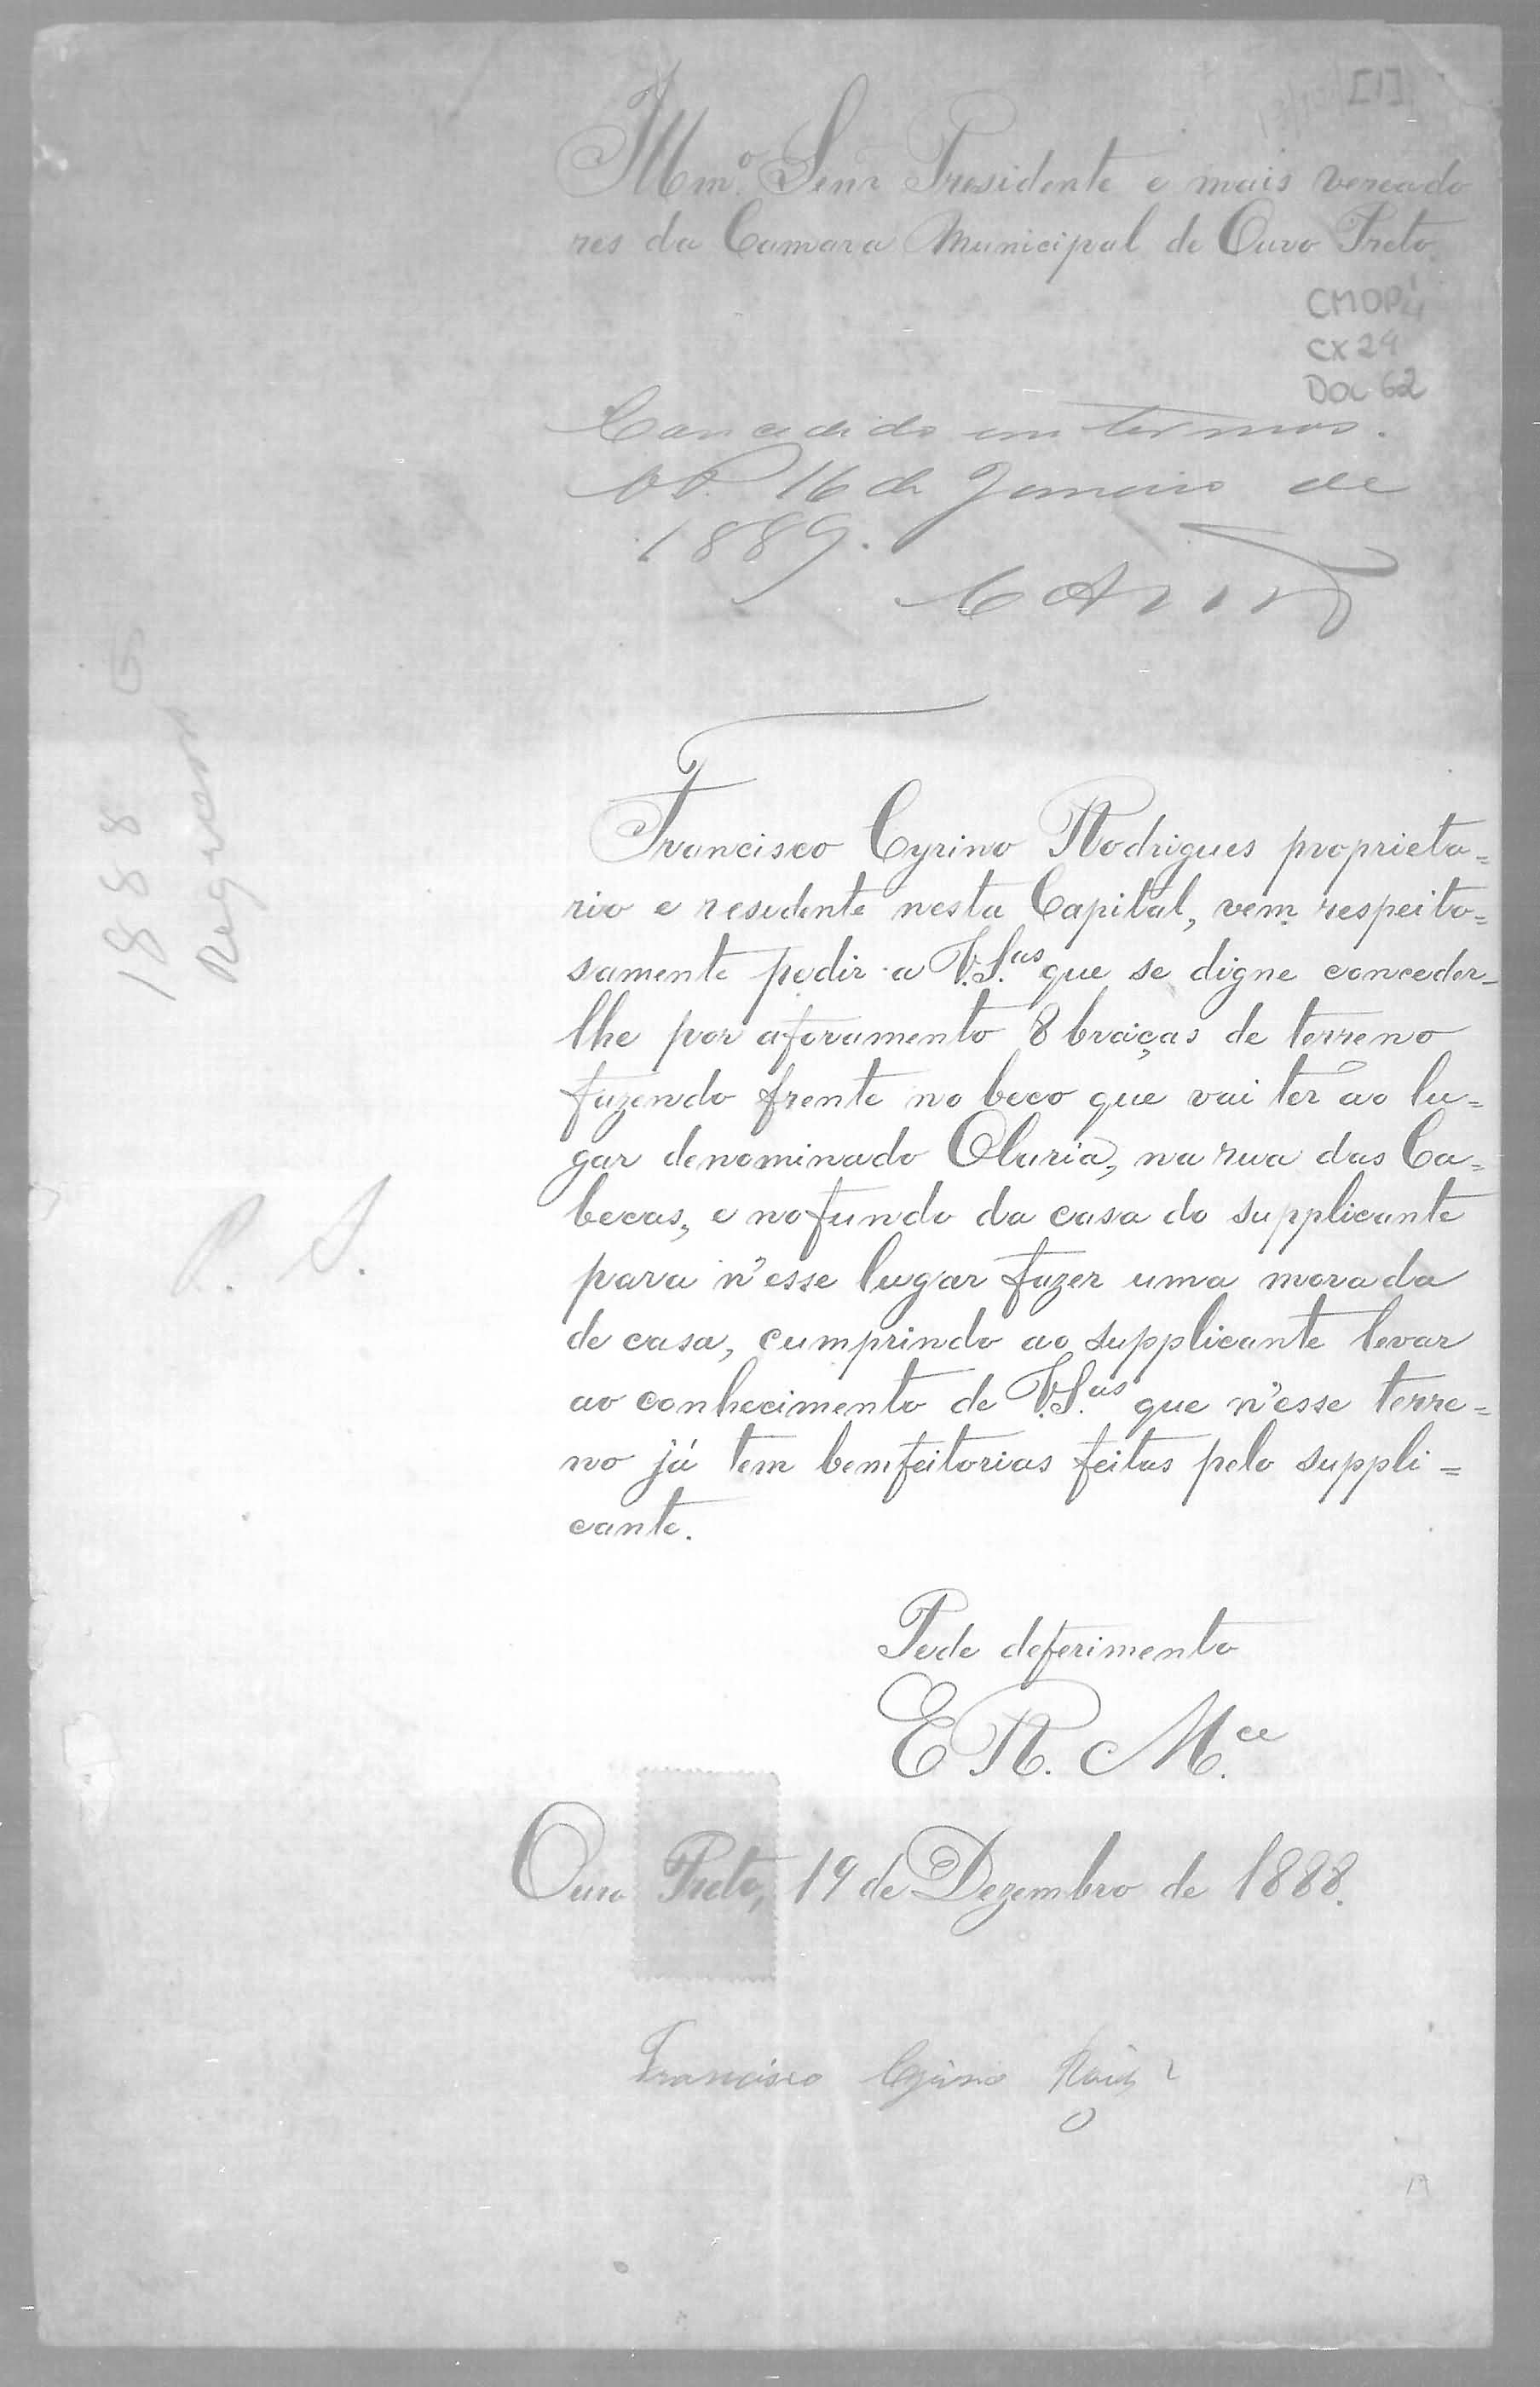 [1]
Illmo. Senr Presidente e mais vereado
res da Camara Municipal de Ouro Preto.
CMOP
CX 24
DOC 62
Concedido em termos.
O P. 16 de Janeiro de
1889.
Francisco Cyrino Rodrigues proprieta=
rio e residente nesta Capital, vem respeito=
samente pedir a V.S.as que se digne conceder-
lhe por aforamento 8 braças de terreno
fazendo frente no beco que vai ter ao lu=
gar denominado Oluria, na rua das Ca=
becas, e no fundo da casa do supplicante
para n'esse lugar fazer uma morada
de casa, cumprindo ao supplicante levar
ao conhecimento de V.S.as que n'esse terre=
no já tem bemfeitorias feitas pelo suppli=
cante.
Pede deferimento
E R. M.ce
Ouro Preto, 19 de Dezembro de 1888.
Francisco Cyrino
1888
P. S.